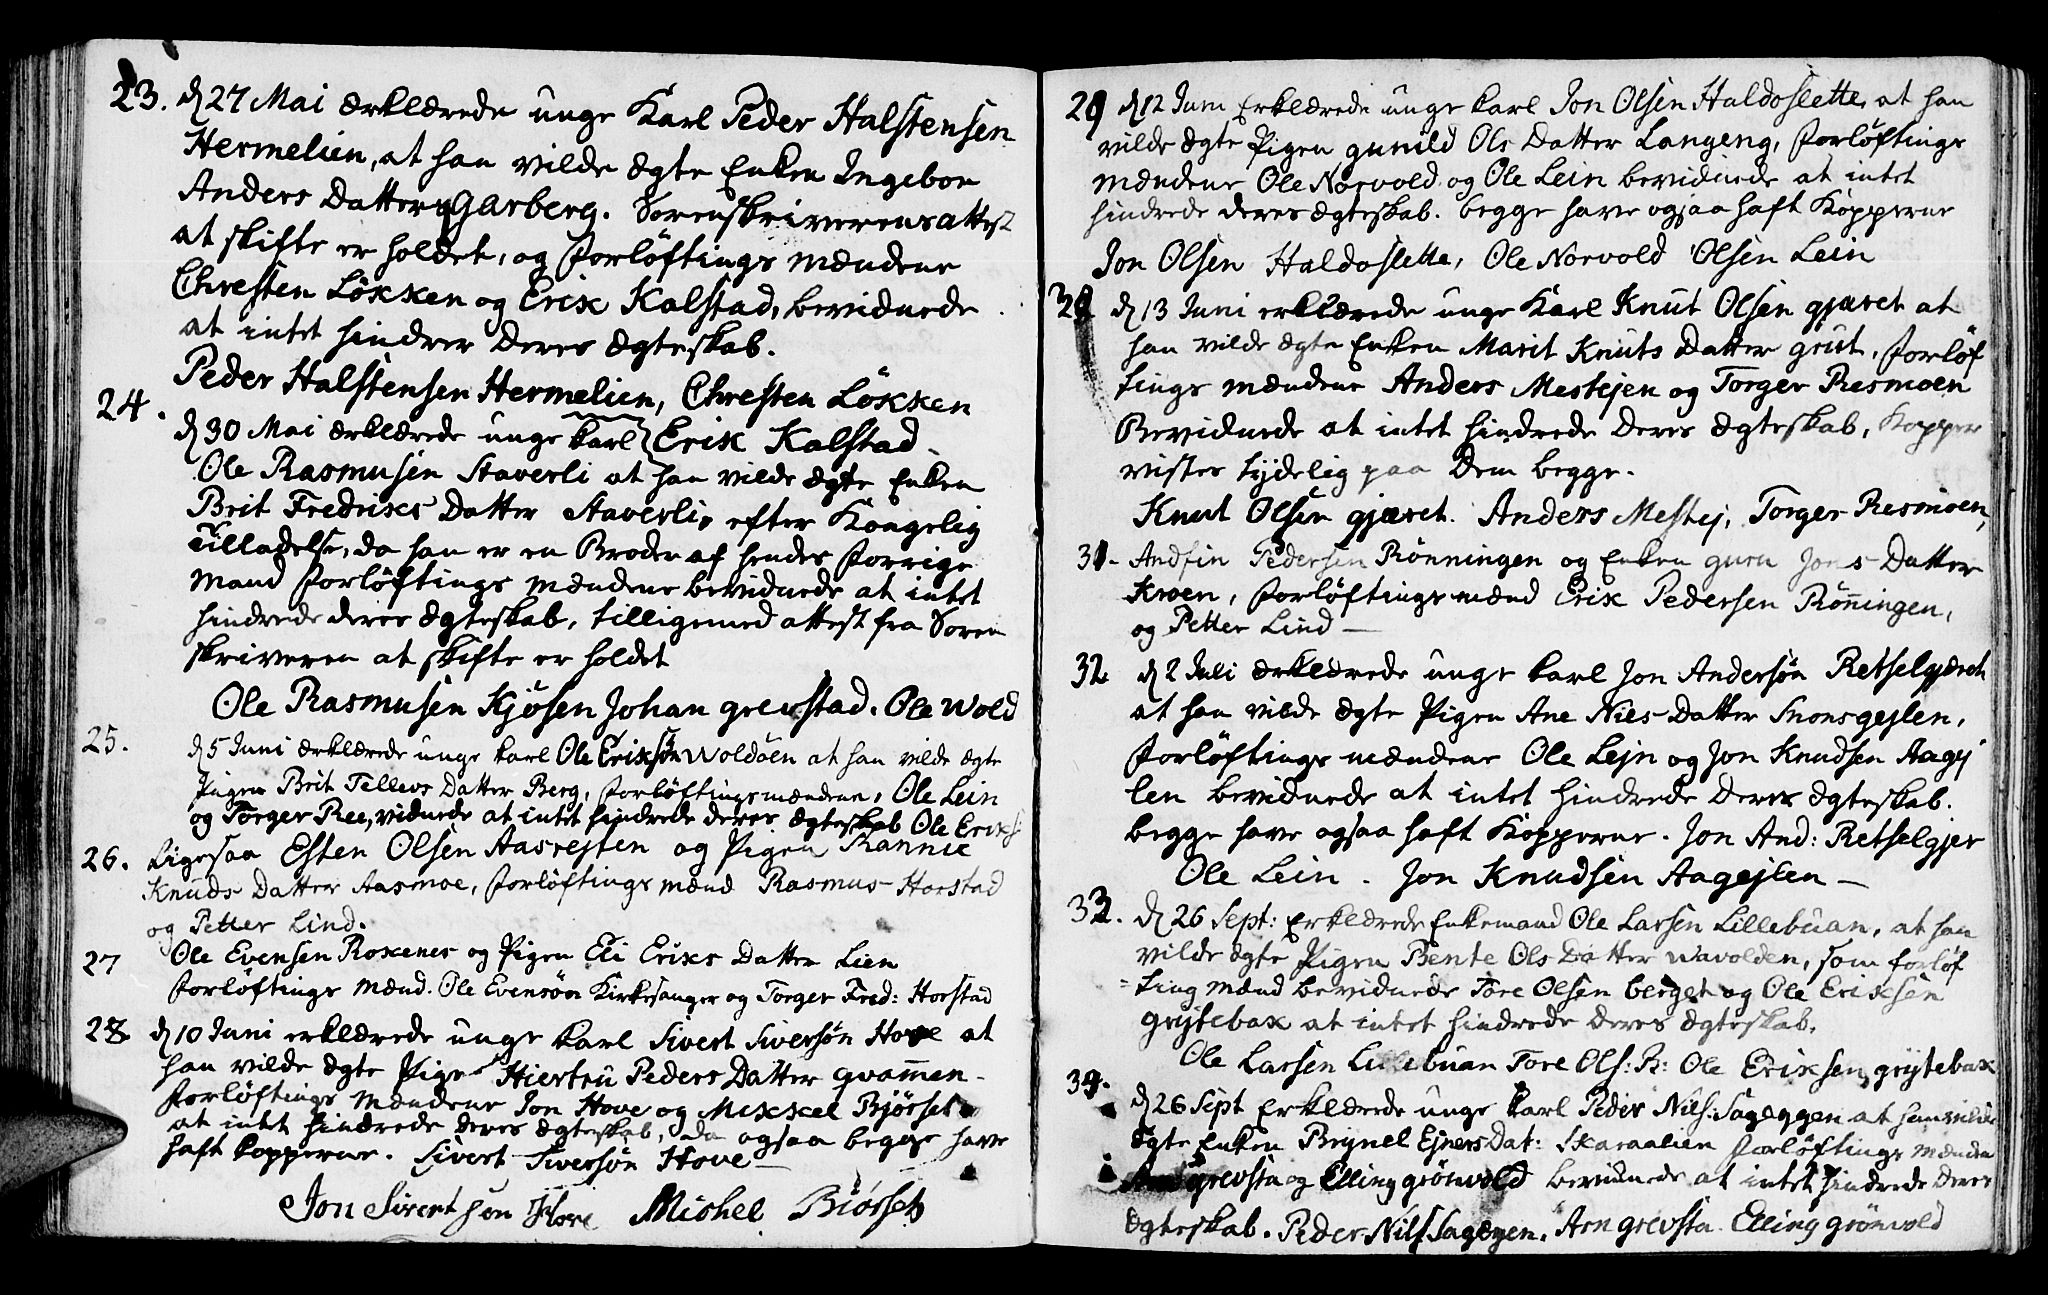 23. d 27 Mai ærklærede unge Karl Peder Halstensen
Hermelien, at han vilde ægte Enken Ingebor
Anders Datter Garberg. Sorenskriverens attest
at skifte er holdet, og Forløftings mændene
Chresten Løkken og Erik Kalstad, bevidnede
at intet hindrer deres Ægteskab.
Peder Halstensen Hermelien, Chresten Løkken
Erik Kalstad
24. d 30 Mai ærklærede unge karl
Ole Rasmusen Staverli at han vilde ægte Enken
Brit Fredriks Datter Staverli, efter Kongelig
Tilladelse, da han er en Broder af hendes forrige
Mand Forløftings mændene bevidnede at intet
hindrede deres Ægteskab, tilligemed attest fra Soren
skriveren at skifte er holdet
Ole Rasmusen Kjøsen Johan grevstad. Ole Wold
25. d 5 Juni ærklærede unge karl Ole Eriksøn Woldøen at han vilde ægte
Pigen Brit Tellevs Datter Berg, Forløftingsmændene, Ole Lein
og Torger Ree, vidnede at intet hindrede deres Ægteskab Ole Eriks
26. Ligesaa Esten Olsen Aasrejten og Pigen Rannie
Knuds Datter Aasmoe, Forløftings mænd Rasmus Horstad
og Petter Lind.
27 Ole Evensen Roxenes og Pigen Eli Eriks Datter Lien
Forløftings mænd. Ole Evensøn Kirkesanger og Torger Fred: Horstad
28 d 10 Juni erklærede unge karl Sivert Siversøn Hove at
han vilde ægte Pige Hiertru Peders Datter gvam̄en
Forløftings mændene Jon Hove og Mikkel Bjørset
at intet hindrede deres Ægteskab, da ogsaa begge have
haft kopperne. Sivert Siversøn Hove
Jon Sivertsøn Hove Michel Biørset
29 d 12 Juni Erklærede unge karl Jon Olsen Haldoslette, at han
vilde ægte Pigen gunild Ols Datter Langeng, Forløftings
mændene Ole Norvold og Ole Lein bevidnede at intet
hindrede deres Ægteskab. begge have ogsaa haft Kopperne
Jon Olsen Haldoslette, Ole Norvold Olsen Lein
30 d 13 Juni erklærede unge Karl Knut Olsen gjæret at
han vilde ægte Enken Marit Knuts Datter grut, Forløf
tings mændene Anders Mestejen og Torger Resmoen
Bevidnede at intet hindrede deres Ægteskab, Kopper
vistes tydelig paa Dem begge.
Knut Olsen gjæret. Anders Mestej, Torger Resmoen,
31. Andfin Pedersen Rønningen og Enken guru Jons Datter
Kroen, Forløftings mænd Erik Pedersen Røn̄ingen,
og Petter Lind
32 d 2 Juli ærklærede unge karl Jon Andersøn Retselgjæret
at han vilde ægte Pigen Ane Niels Datter Snonsgejlen,
Forløftings mændene Ole Lejn og Jon Knudsen Aagej
len bevidnede at intet hindrede deres Ægteskab.
begge have ogsaa haft Kopperne. Jon And: Retselgjer
Ole Lein. Jon Knudsen Aagejlen
33. d 26 Sept: Erklærede Enkemand Ole Larsen Lillebuan, at han
vilde ægte Pigen Bente Ols Datter Wavolden, som forløf
ting mænd bevidnede Tore Olsen berget og Ole Eriksen
grytebak at intet hindrede deres Ægteskab.
Ole Larsen Lillebuan Tore Ols: B: Ole Eriksen grytebak
34. d 26 Sept Erklærede unge karl Peder Nils: Sagæggen at han vilde
ægte Enken Brynel Ejners Dat: Skaraalien Forløftings mænden
grevsta og Elling grønvold bevidnede at intet hindrede deres
Ægteskab. Peder Nils Sagægen. Arn grevsta Elling grønvold